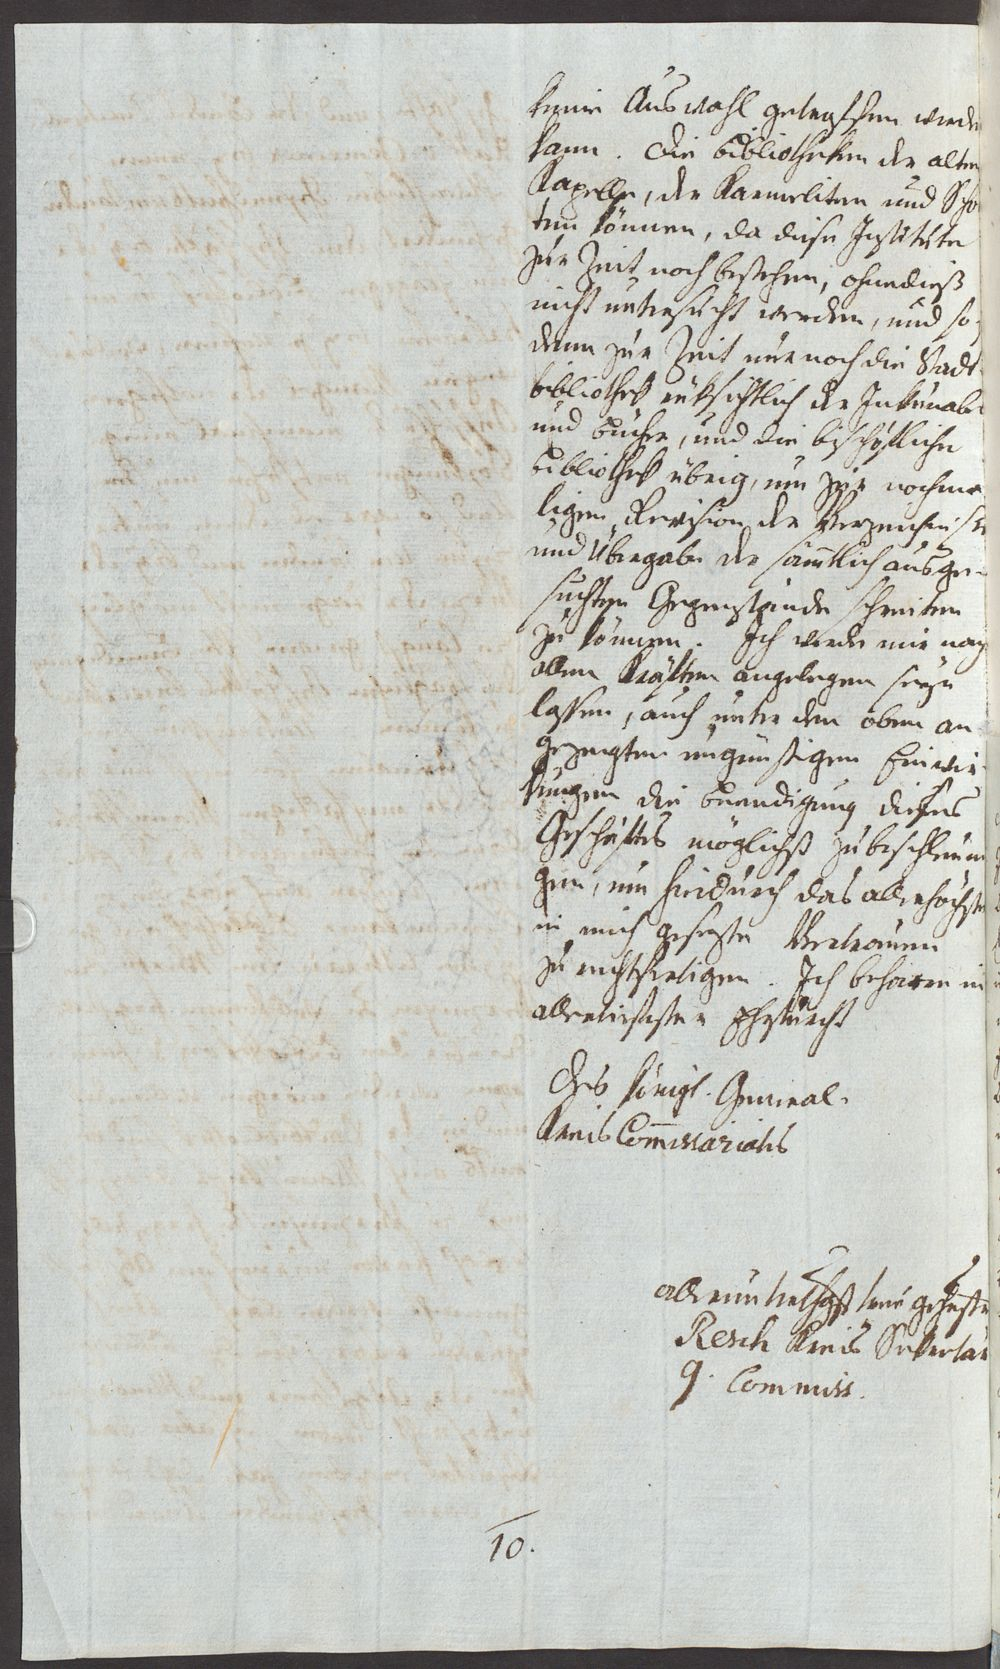 keine Auswahl getroffen werde
kann. Die Bibliotheken der alten
Kapelle, der Karmeliten und Scho
ten können, da diese Institute
zur Zeit noch bestehen, ohnedieß
nicht untersucht werden, und so
denn zur Zeit nur noch die Stadt
bibliothek rüksichtlich der Inkunabel
und Bücher, und die bischöfliche
Bibliothek übrig, um zur nochma
ligen Revision der Verzeichnisse
und Übergabe der sämtlich ausge-
suchten Gegenstände schreiten
zu können. Ich werde mir nach
allen Kräften angelegen seyn
lassen, auch unter den oben an
gezeigten ungünstigen Einwir-
kungen die Beendigung dieses
Geschäftes möglichst zu beschleuni
gen, um hiedurch das allerhöchste
in mich gesezte Vertrauen
zu rechtfertigen. Ich beharre in
allertiefster Ehrfurcht
Des königl. General-
Kreis Commissariats
allerunterthgst treu gehorste
Resch Kreis Sekretär
q. Commiss.
10.